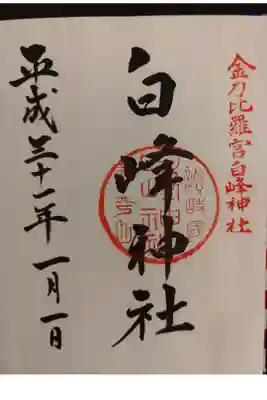 金刀比羅宮白峰神社
白峰神社
平成三十一年一月一日